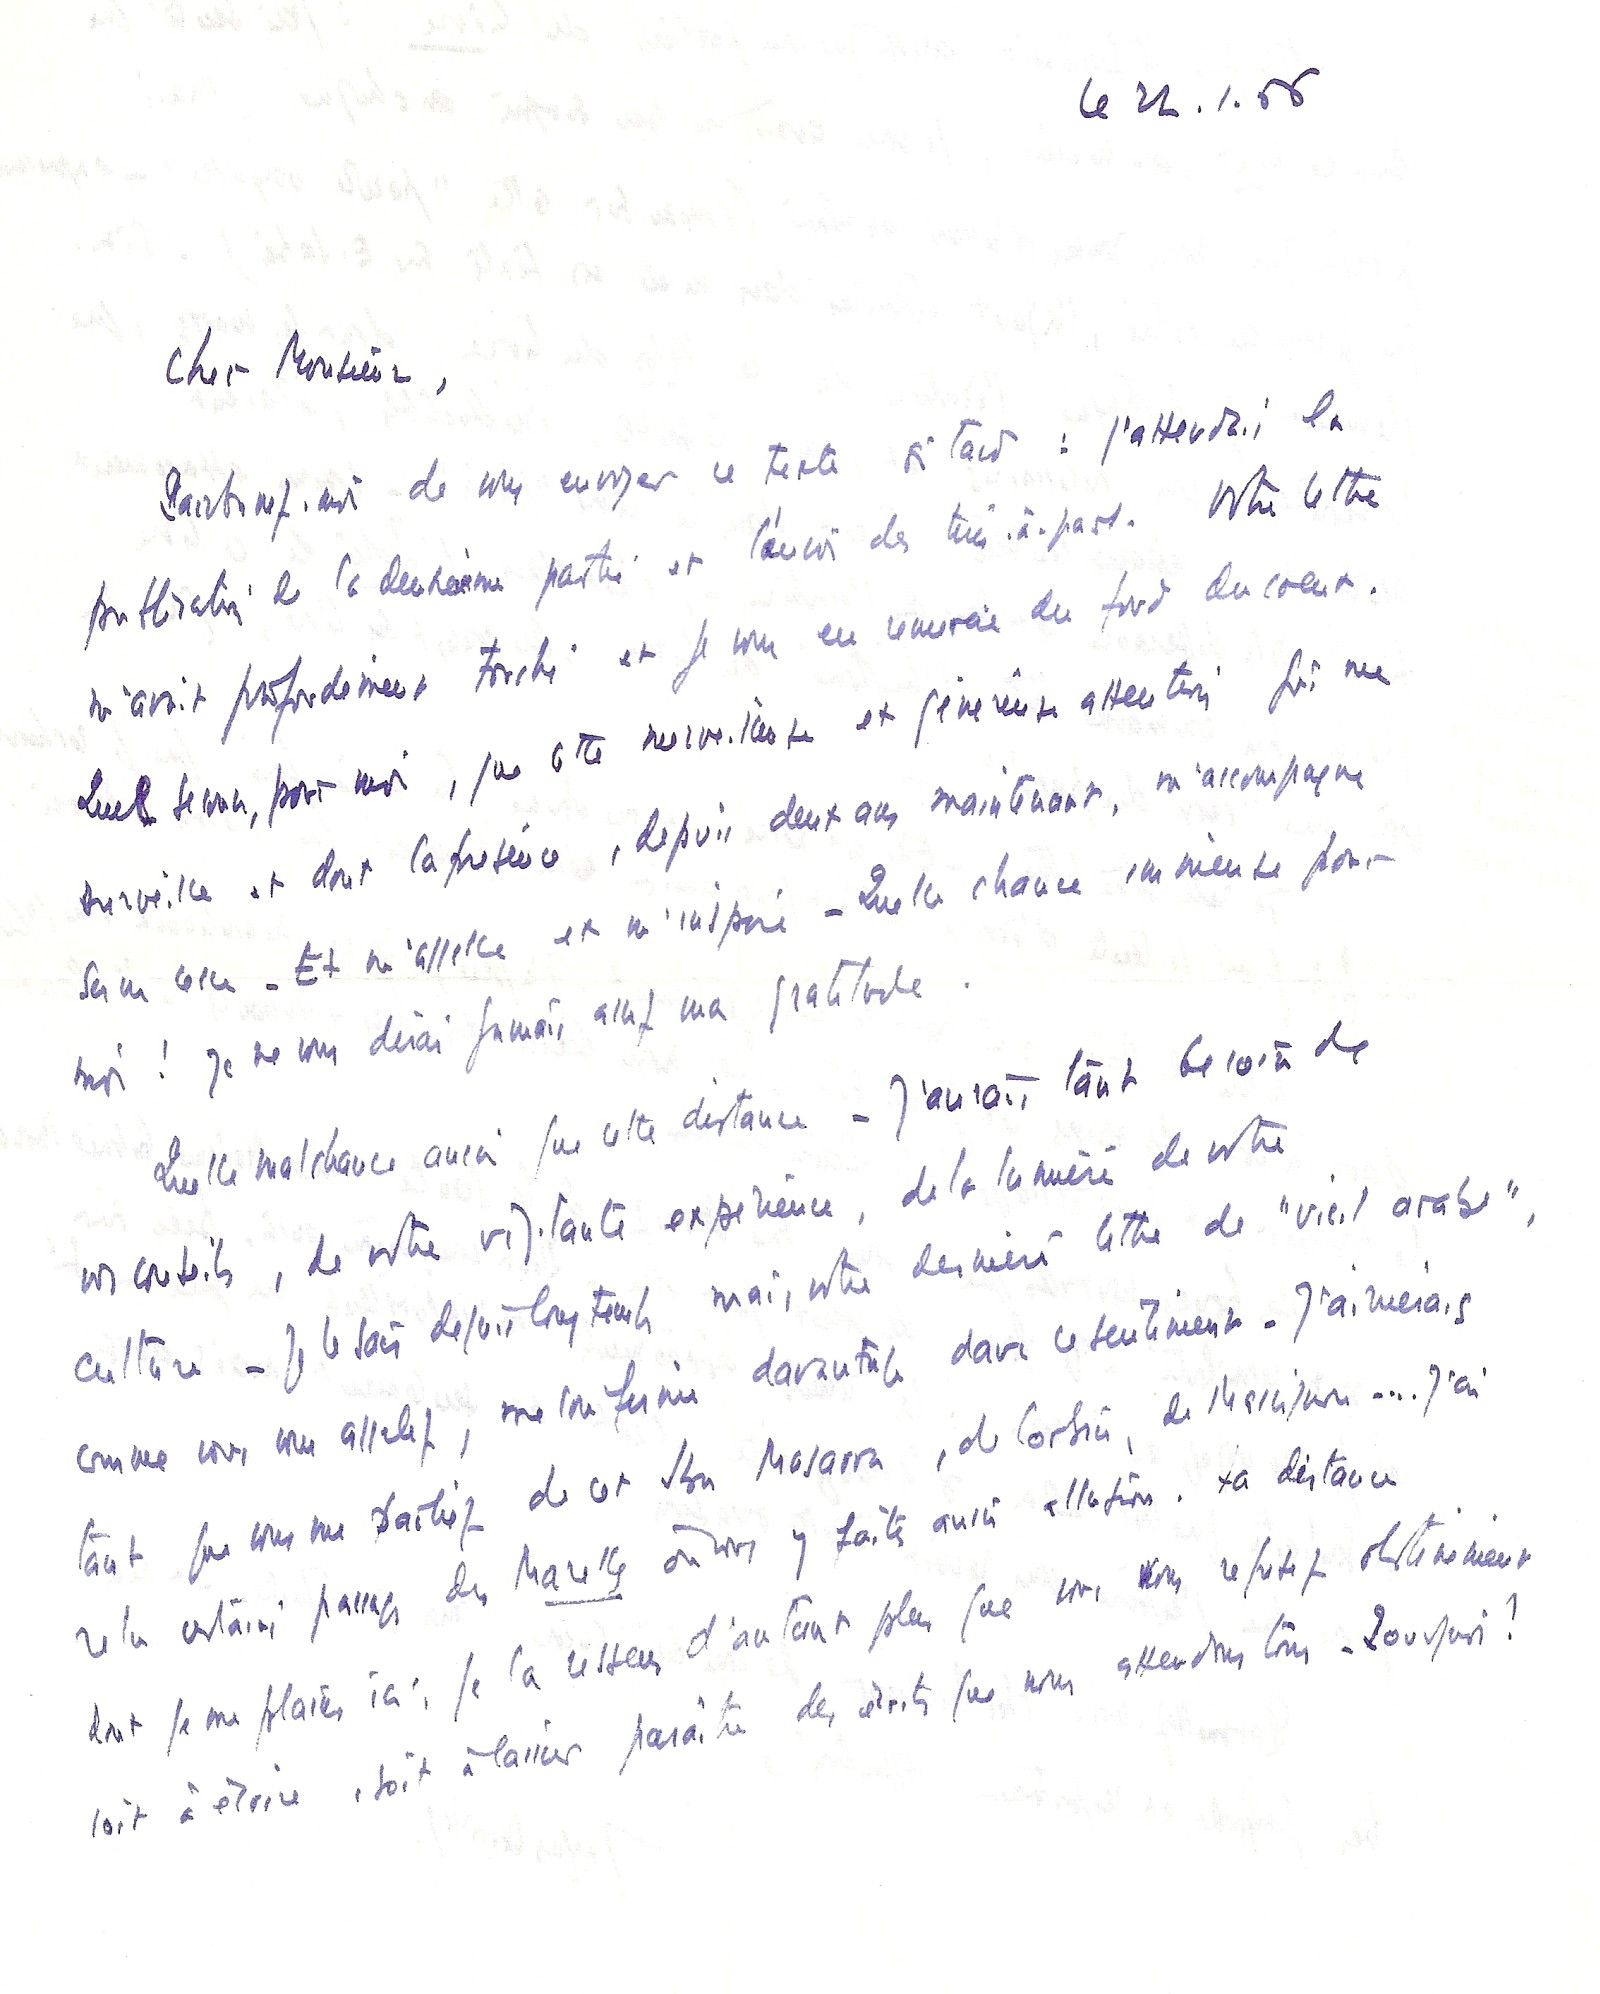 le 22.1.66
Cher Monsieur,
Pardonnez-moi de vous envoyer ce texte si tard : j'attendais la
publication de la deuxième partie et l'envoi des tirés-à-part. Votre lettre
m'avait profondément touché et je vous en remercie du fond du cœur.
Quel secours, pour moi, que cette merveilleuse et généreuse attention qui me
surveille et dont la présence, depuis deux ans maintenant, m'accompagne
sans cesse - Et m'appelle et m'inspire - Quelle chance immense pour
moi ! Je ne vous dirai jamais assez ma gratitude.
Quelle malchance aussi que cette distance - J'aurais tant besoin de
vos conseils, de votre vigilante expérience, de la lumière de votre
culture - Je le sais depuis longtemps mais votre dernière lettre de "vieil arabe",
comme vous vous appelez, me confirme davantage dans ce sentiment - J'aimerais
tant que vous me parliez de cet Ibn Masarra, de Corbin, de Massignon .... J'ai
relu certains passages des Mazelle où vous y faites aussi allusion. La distance
dont je me plains ici, je la ressens d'autant plus que vous vous refusez obstinément
soit à écrire, soit à laisser paraître des écrits que nous attendons tous - Pourquoi ?